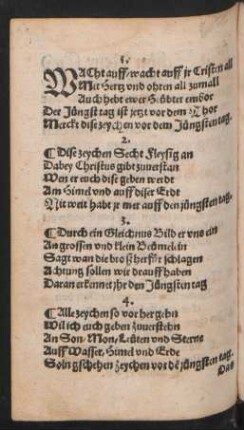 1.
WAcht auff wacht auff jr Cristen all
Mit Hertz vnd ohren all zumall
Auch hebt ewer Häubter embor
Der Jüngst tag ist jetzt vor dem Thor
Merckt dise zeychen vor dem Jüngsten tag.
2.
¶Dise zeychen Secht Fleysig an
Dabey Christus gibt zuuerstan
Wen er euch dise geben werdt
Am Himel vnd auff diser Erde
Nit weit habt jr mer auff den jüngsten tag.
3.
¶Durch ein Gleichnus Bild er vns ein
An grossen vnd klein Beümelein
Sagt wan die bros herfür schlagen
Achtung sollen wir drauff haben
Daran erkennet jhr den Jüngsten tag
4.
¶Alle zeychen so vor her gehn
Wil ich euch geben zuuerstehn
An Son, Mon, Leüten vnd Sterne
Auff Wasser, Himel vnd Erde
Soln gschehen Zeychen vor dē jüngsten tag.
Das